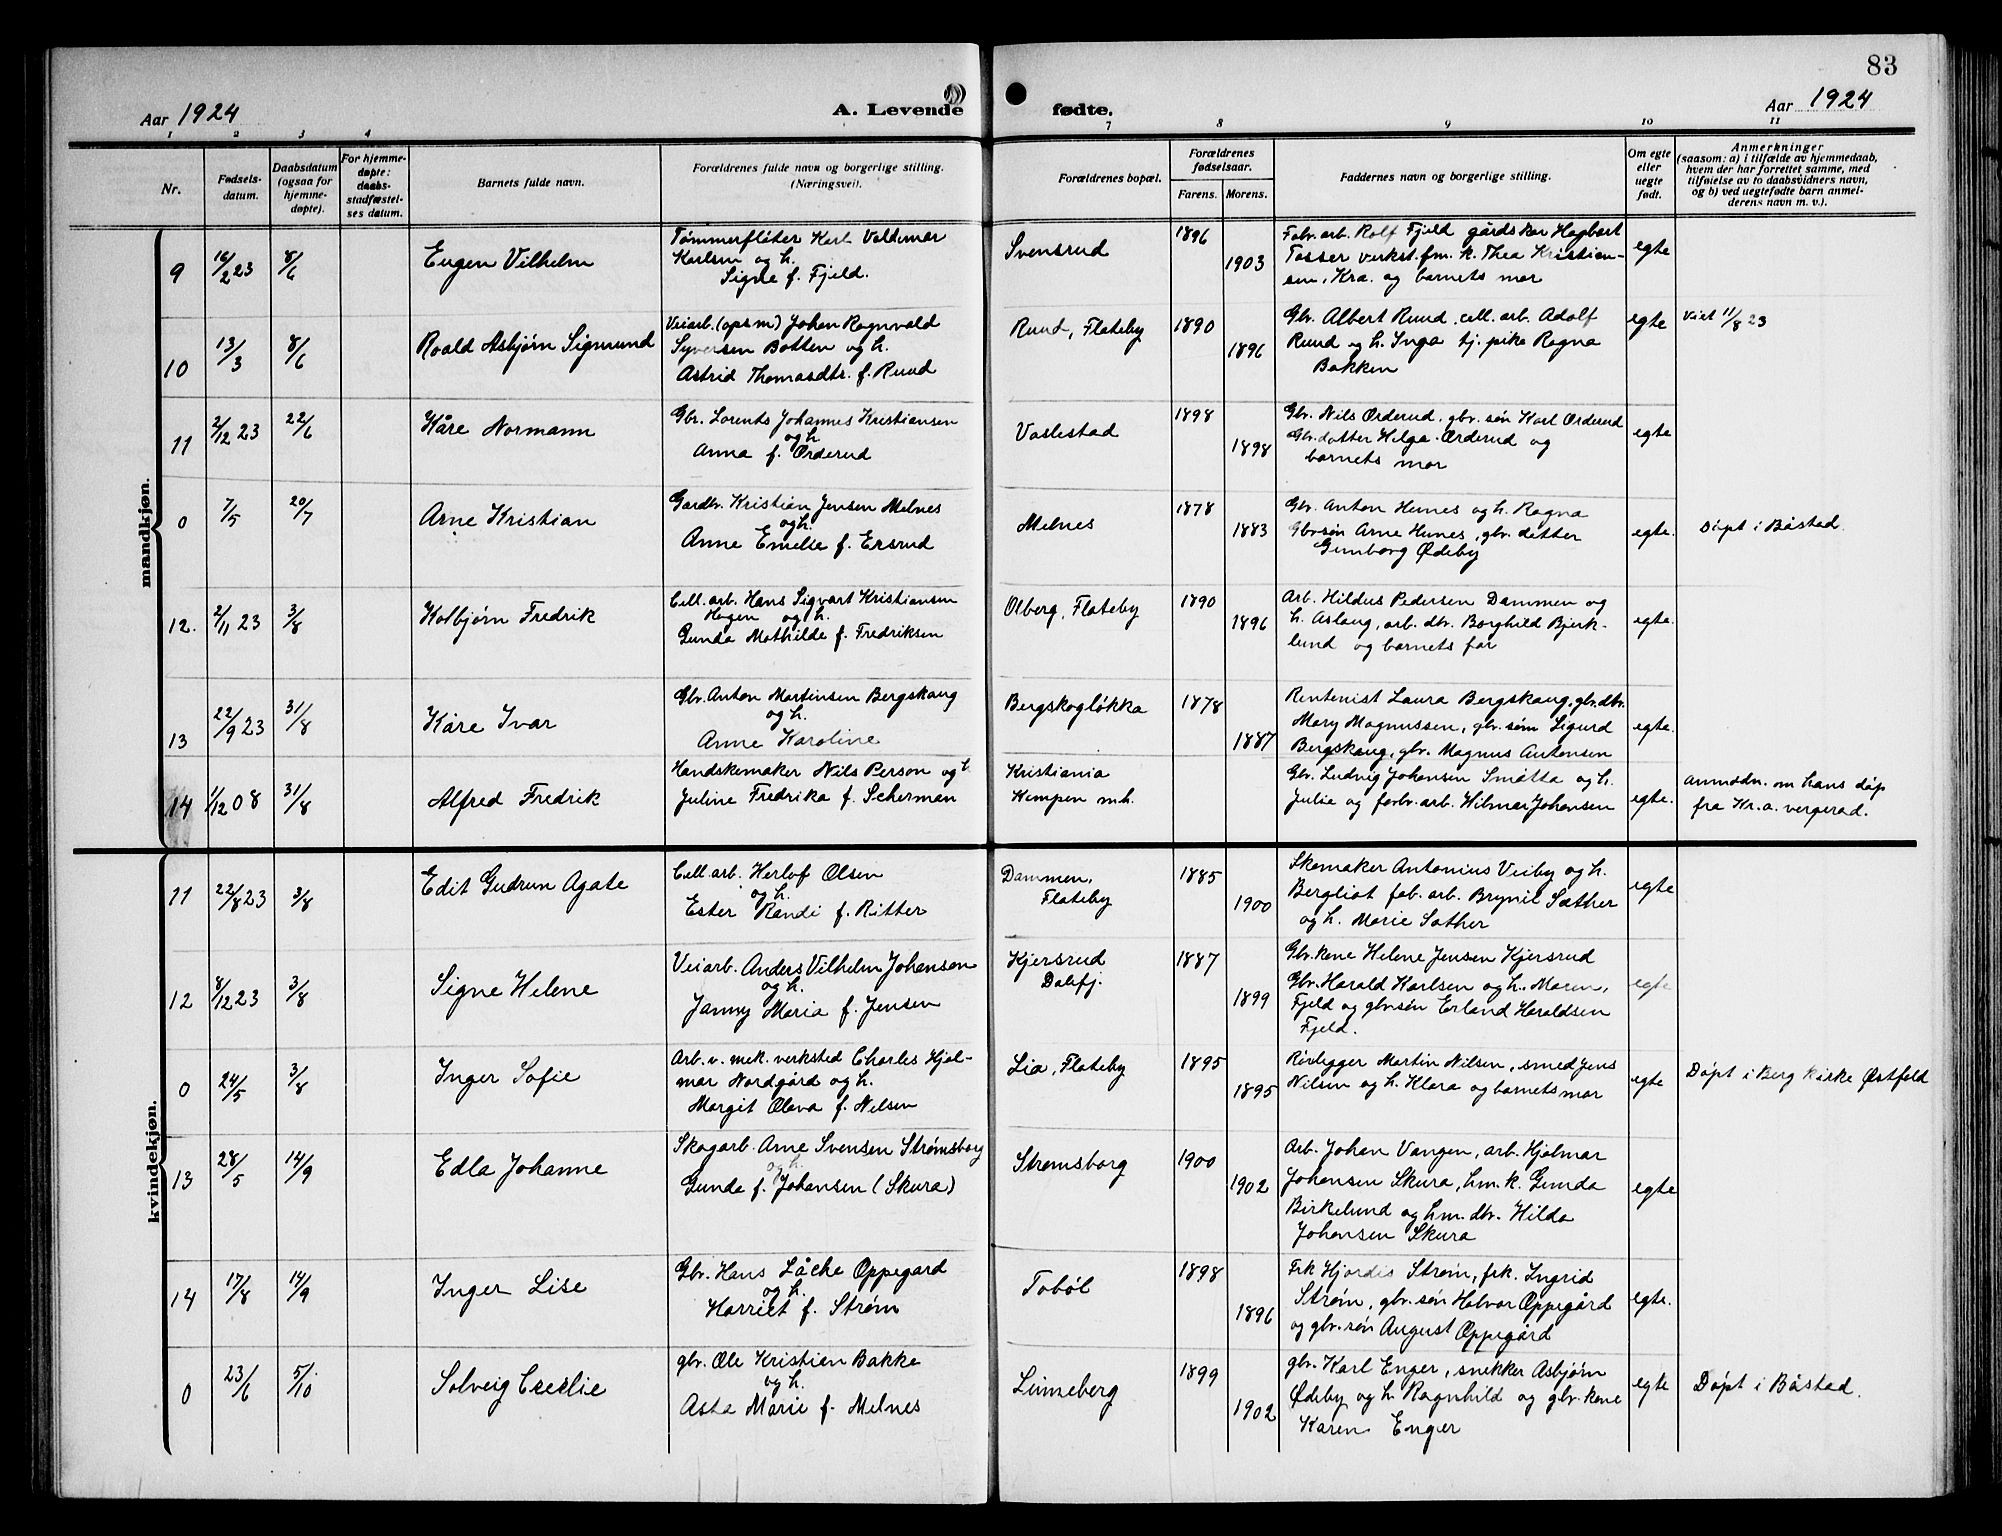 83
Aar 1924
A. Levende fødte.
Aar 1924
1 2 3 4 7 8 9 10 11
Nr.
Fødsels-
datum.
Daabsdatum
(ogsaa for
hjemme-
døpte).
For hjemme-
døpte:
daabs-
stadfæstel-
ses datum.
Barnets fulde navn.
Forældrenes fulde navn og borgerlige stilling.
(Næringsvei).
Forældrenes bopæl.
Forældrenes
fødselsaar.
Farens. Morens.
Faddernes navn og borgerlige stilling.
Om egte
eller
uegte
født.
Anmerkninger
(saasom: a) i tilfælde av hjemmedaab,
hvem der har forrettet samme, med
tilføielse av to daabsvidners navn,
og b) ved uegtefødte barn anmel-
derens navn m. v.).
mandkjøn.
9
16/2 23
8/6
Eugen Vilhelm
Tømmerfløter Karl Valdemar
Karlsen og h.
Signe f. Fjeld.
Svensrud
1896
1903
Fabr. arb. Rolf Fjeld gårdskar Hagbart
Tosser verkst.fm. k. Thea Kristian-
sen, Kra. og barnets mor
egte
10
13/3
8/6
Roald Asbjørn Sigmund
Veiarb. (opsm) Johan Ragnvald
Syversen Botten og h.
Astrid Thomasdtr. f. Ruud
Ruud, Flateby
1890
1896
Gbr. Albert Ruud, cell. arb. Adolf
Ruud og h. Inga tj. pike Ragna
Bakken
egte
Viet 11/8 23
11
2/12 23
22/6
Kåre Normann
Gbr. Lorents Johannes Kristiansen
og h
Anna f. Orderud
Vaslestad
1898
1898
Gbr. Nils Orderud, gbr. søn Karl Orderud
Gbr. datter Helga Orderud og
barnets mor
egte
0
7/5
20/7
Arne Kristian
Gardbr. Kristian Jensen Melnes
og h.
Anne Emelse f. Ersrud
Melnes
1878
1883
Gbr. Anton Hemes og h. Ragna
Gbr søn Arne Hemes, gbr. datter
Gunborg Ødeby
egte.
Døpt i Båstad.
12.
2/11 23
3/8
Kolbjørn Fredrik
Cell. arb. Hans Sigvart Kristiansen
Hagen og h.
Gunda Mathilde f. Fredriksen
Olberg, Flateby
1890
1896
Arb. Hildus Pedersen Dammen og
h. Aslaug, arb. dtr. Borghild Bjerk-
lund og barnets far
egte.
13
22/9 23
31/8
Kåre Ivar
Gbr. Anton Martinsen Bergskaug
og h.
Anne Karoline
Bergskogløkka
1878
1887
Rentenist Laura Bergskaug, gbr. dtr.
Mary Magnussen, gbr. søn Sigurd
Bergskaug, gbr. Magnus Antonsen
egte.
14
1/12 08
31/8
Alfred Fredrik
Handskemaker Nils Person og h
Juline Fredrika f. Scherman
Kristiania
Kempen m.h.
Gbr. Ludvig Johansen Småtta og h.
Julie og farbr. arb. Hilmar Johansen
egte.
Anmodn. om hans døp
fra Kr.a. vergerad.
kvindekjøn.
11
22/8 23
3/8
Edit Gudrun Agate
Cell. arb. Herlof Olsen
og h.
Ester Randi f. Ritter
Dammen,
Flateby
1885
1900
Skomaker Antonius Veiby og h.
Bergliot fab. arb. Brynil Sæther
og h. Marie Sæther
egte
12
8/12 23
3/8
Signe Helene
Veiarb. Anders Vilhelm Johanson
og h.
Janny Maria f. Jensen
Kjersrud
Dalefj.
1887
1899
Gbr. kone Helene Jensen Kjersrud
Gbr. Harald Karlsen og h. Maren,
Fjeld og gbr søn Erland Haraldsen
Fjeld.
egte
0
24/5
3/8
Inger Sofie
Arb. v. mek. verksted Charles Hjal-
mar Nordgård og h.
Margit Olava f. Nilsen
Lia, Flateby
1895
1895
Rørlegger Martin Nilsen, smed Jens
Nilsen og h. Klara og barnets mor
egte
Døpt i Berg Kirke Østfold
13
28/5
14/9
Edla Johanne
Skogarb. Arne Svensen Strømsborg
og h.
Gunda f. Johansen (Skura)
Strømsborg
1900
1902
Arb. Johan Vangen, arb. Hjalmar
Johansen Skura, hm. k. Gunda
Birkelund og hm. dtr. Hilda
Johansen Skura
egte
14
17/8
14/9
Inger Lise
Gbr. Hans Låche Oppegård
og h.
Harriet f. Strøm
Tobøl
1898
1896
Frk Hjørdis Strøm, frk. Ingrid
Strøm, gbr. søn Halvor Oppegård
og gbr. søn August Oppegård
egte.
0
23/6
5/10
Solveig Cecilie
gbr. Ole Kristian Bakke
og h.
Asta Marie f. Melnes
Linneberg
1899
1902
gbr. Karl Enger, snekker Asbjørn
Ødeby og h. Ragnhild og gbr. kone
Karen Enger
egte
Døpt i Båstad.